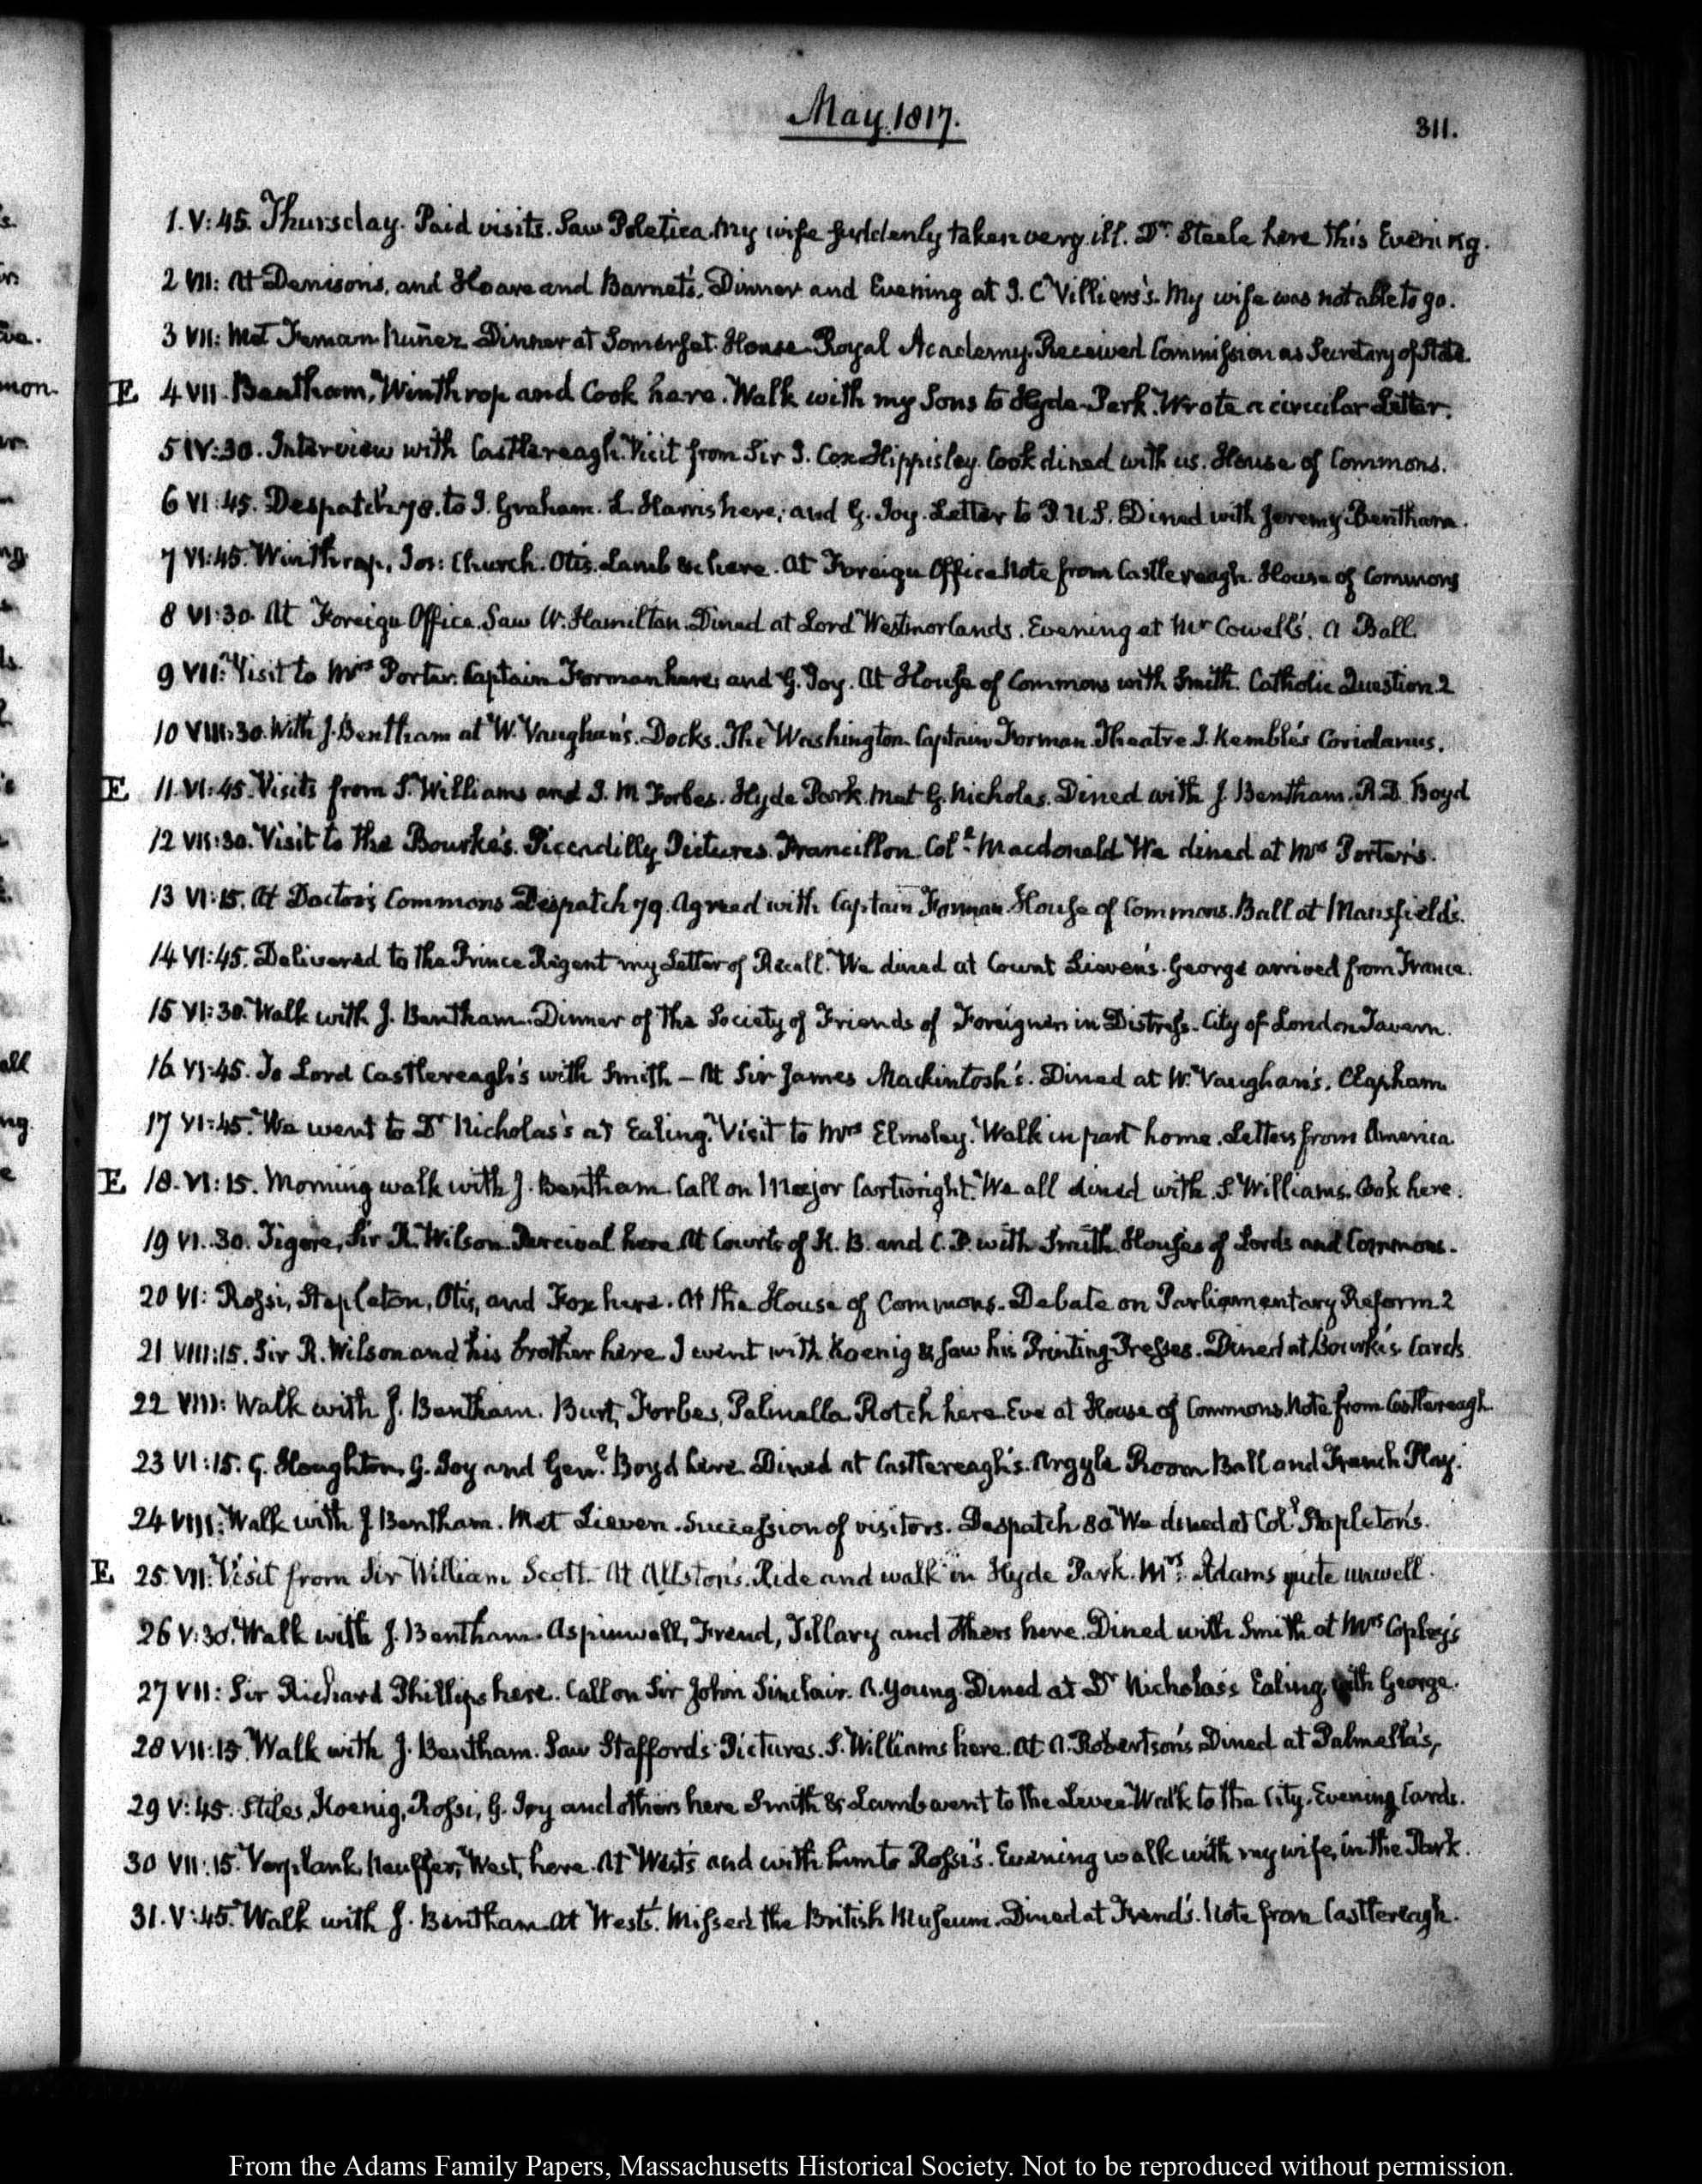 May 1817.
311.
1. V:45. Thursday. Paid visits. Saw Poletica. My wife suddenly taken very ill. Dr. Steele here this Evening.
2 VII: At Denison's, and Hoare and Barnet's. Dinner and Evening at J. C Villiers's. My wife was not able to go.
3 VII: Met Fernan Nuñez Dinner at Somerset House Royal Academy. Received Commission as Secretary of State.
E 4 VII. Bentham, Winthrop and Cook here. Walk with my Sons to Hyde-Park. Wrote a circular Letter.
5 IV:30. Interview with Castlereagh. Visit from Sir J. Cox Hippisley. Cook dined with us. House of Commons.
6 VI:45. Despatch 78. to J. Graham. L. Harris here, and G. Joy. Letter to P.U.S. Dined with Jeremy Bentham.
7 VI:45. Winthrop, Jos: Church. Otis. Lamb &c here. At Foreign Office Note from Castlereagh. House of Commons
8 VI:30. At Foreign Office. Saw W. Hamilton. Dined at Lord Westmorlands. Evening at Mr Cowell's. A Ball.
9 VII: Visit to Mrs Porter. Captain Forman here, and G. Joy. At House of Commons with Smith. Catholic Question. 2
10 VIII:30. With J. Bentham at W. Vaughan's. Docks. The Washington. Captain Forman. Theatre J. Kemble's Coriolanus.
E 11. VI:45. Visits from S. Williams and J. M Forbes. Hyde Park. Met G. Nicholas. Dined with J. Bentham. R.D. Boyd
12 VII:30. Visit to the Bourke's. Piccadilly Pictures. Francillon. Coll. Macdonald We dined at Mrs Porter's.
13 VI:15. At Doctor's Commons Despatch 79. Agreed with Captain Forman House of Commons. Ball at Mansfield's.
14 VI:45. Delivered to the Prince Regent my Letter of Recall. We dined at Count Lieven's. George arrived from France.
15 VI:30. Walk with J. Bentham. Dinner of the Society of Friends of Foreigners in Distress. City of London Tavern.
16 VI:45. To Lord Castlereagh's with Smith — At Sir James Mackintosh's. Dined at W. Vaughan's. Clapham
17 VI:45. We went to Dr Nicholas's at Ealing. Visit to Mrs Elmsley. Walk in part home. Letters from America.
E 18. VI:15. Morning walk with J. Bentham. Call on Major Cartwright. We all dined with S. Williams. Cook here.
19 VI:30. Sir R. Wilson. Percival here At Courts of K. B. and C. P. with Smith. Houses of Lords and Commons.
20 VI: Rossi, Stapleton, Otis, and Fox here. At the House of Commons. Debate on Parliamentary Reform. 2
21 VIII:15. Sir R. Wilson and his brother here I went with Koenig & saw his Printing Presses. Dined at Bourke's Cards
22 VIII: Walk with J. Bentham. Burt, Forbes, Palmella Rotch here. Eve at House of Commons. Note from Castlereagh.
23 VI:15. G. Houghton, G. Joy and Genl. Boyd here. Dined at Castlereagh's. Argyle Room Ball and French Play.
24 VIII: Walk with J. Bentham. Met Lieven. Succession of visitors. Despatch 80. We dined at Coll Stapleton's.
E 25. VII: Visit from Sir William Scott. At Allston's. Ride and walk in Hyde Park. Mrs. Adams quite unwell.
26 V:30. Walk with J. Bentham. Aspinwall, Frend, Tillary and others here. Dined with Smith at Mrs Copley's
27 VII: Sir Richard Phillips here. Call on Sir John Sinclair. A. Young. Dined at Dr Nicholas's Ealing, with George.
28 VII:15. Walk with J. Bentham. Saw Staffords Pictures. S. Williams here. At A. Robertson's Dined at Palmella's,
29 V:45. Stiles, Koenig, Rossi, G. Joy and others here Smith & Lamb went to the Levee Walk to the City. Evening Cards.
30 VII:15. Verplank, West, here. At West's and with him to Rossi's. Evening walk with my wife, in the Park.
31. V:45. Walk with J. Bentham. At West's. Missed the British Museum. Dined at Frend's. Note from Castlereagh.
From the Adams Family Papers, Massachusetts Historical Society. Not to be reproduced without permission.